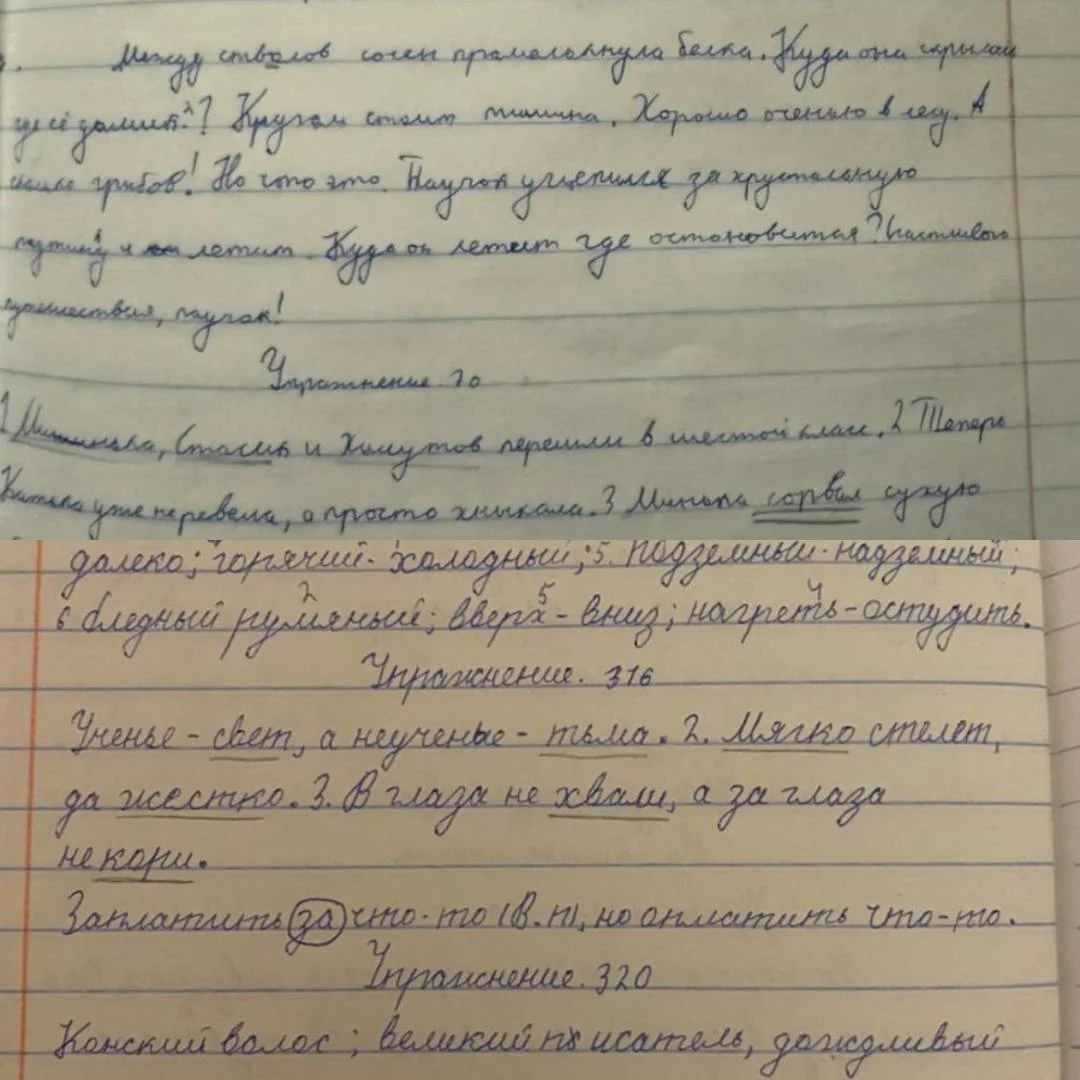 Между стволов сосен промелькнула белка. Куда она скрылась
где её домик? Кругом стоит тишина. Хорошо осенью в лесу. А
сколько грибов! Но что это. Паучок уцепился за хрустальную
паутину и летит. Куда он летит где остановится? Счастливого
путешествия, паучок!
Упражнение. 70
1 Мишка, Стасик и Хомутов перешли в шестой класс. 2 Теперь
уже не ревела, а просто хныкала. 3 Минька сорвал сухую
далеко; горячий - холодный; 5. подземный - надземный;
6 бледный румяный; вверх - вниз; нагреть - остудить.
Упражнение. 316
Ученье - свет, а неученье - тьма. 2. Мягко стелет,
да жестко. 3. В глаза не хвали, а за глаза
не кори.
Заплатить за что-то (В.п), но оплатить что-то.
Упражнение. 320
Конский волос; великий писатель, дождливый